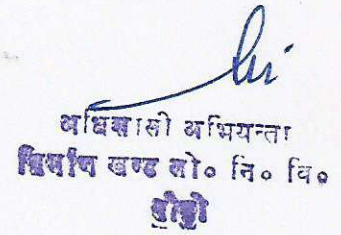 अधिशासी अभियन्ता
निर्माण खण्ड लो० नि० वि०